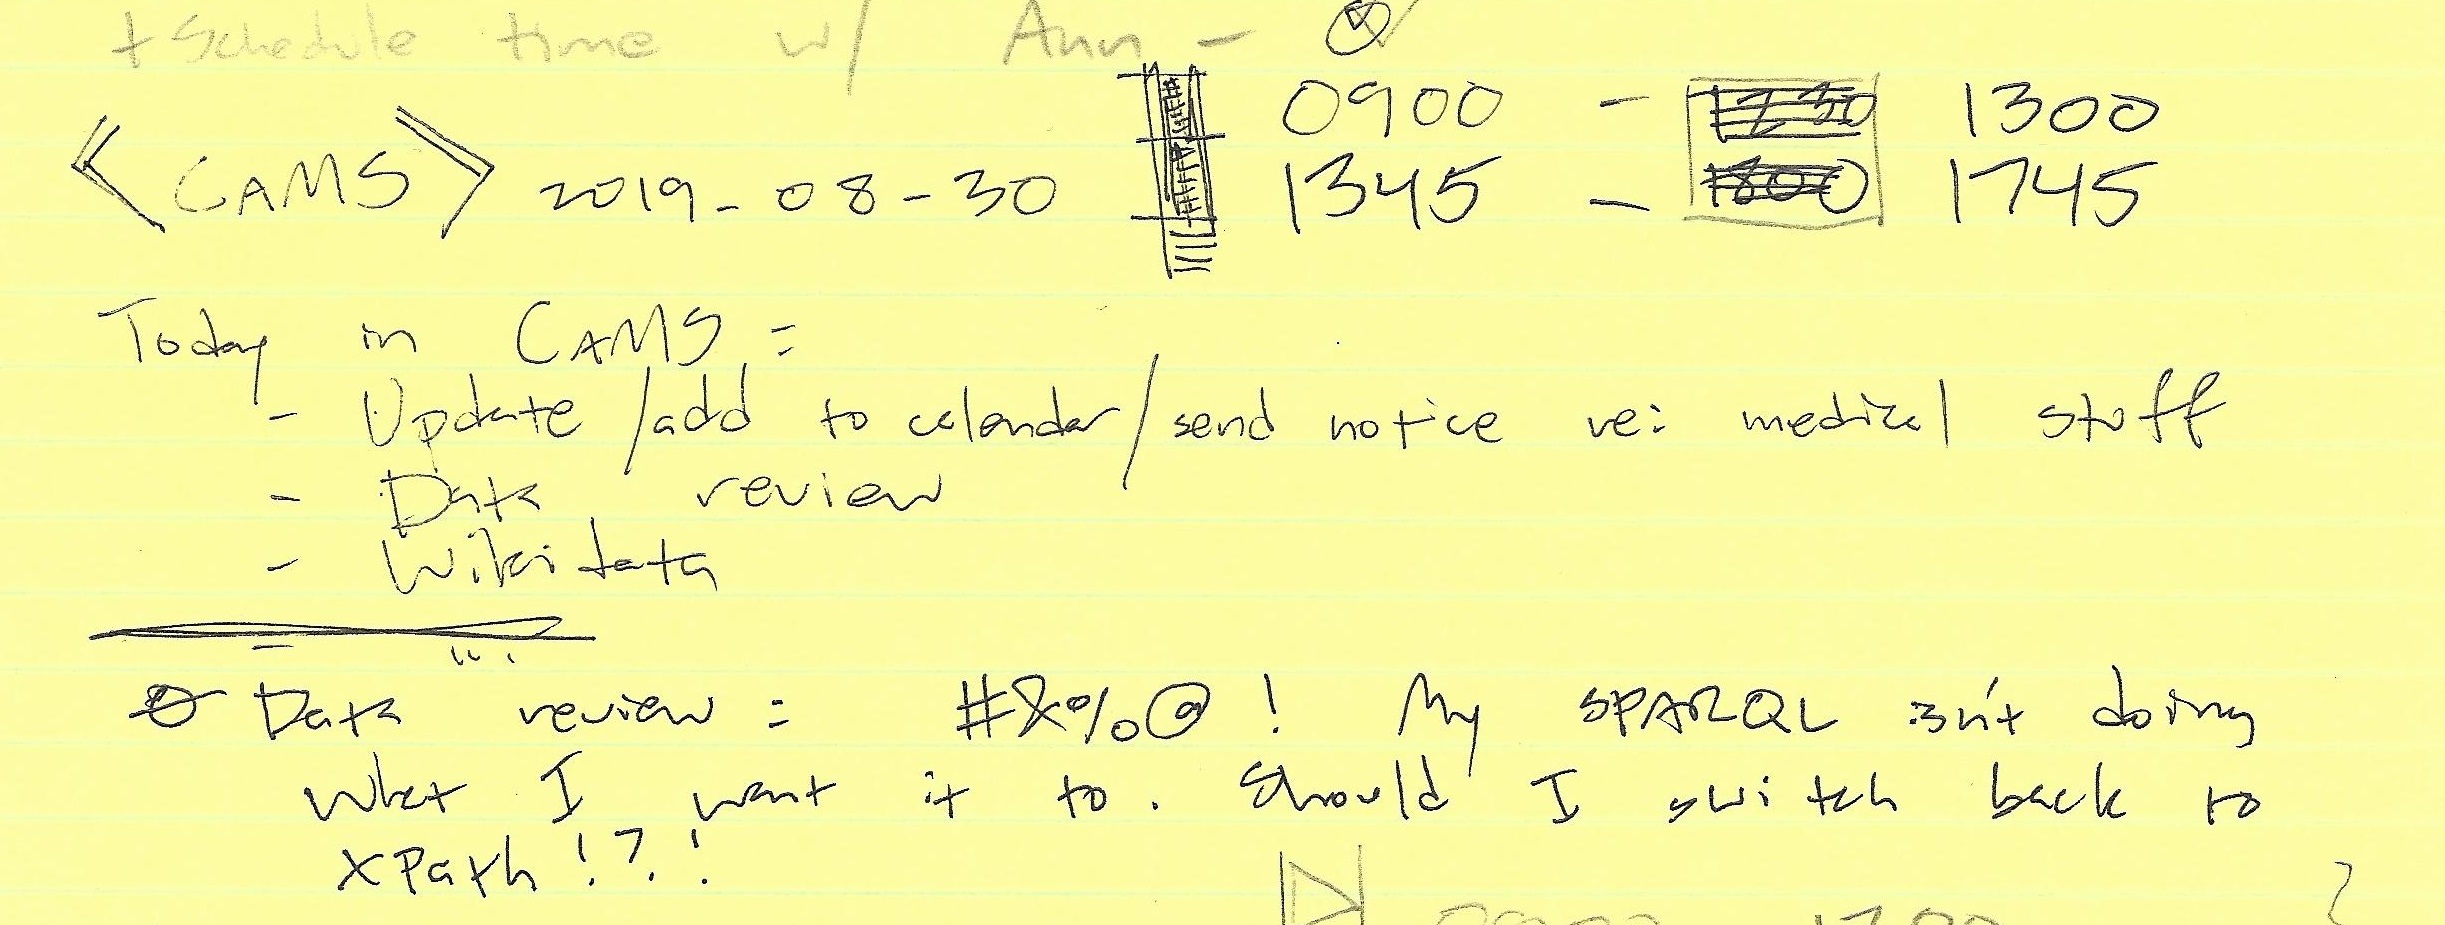 + Schedule time w/ Ann -
0900 - 1230 1300
<CAMS> 2019-08-30 1345 - 1800 1745
Today in CAMS:
- Update/add to calendar/send notice re: medical stuff
- Data review
- Wikidata
Data review: #&%@! My SPARQL isn't doing
what I want it to. Should I switch back to
XPath!?!